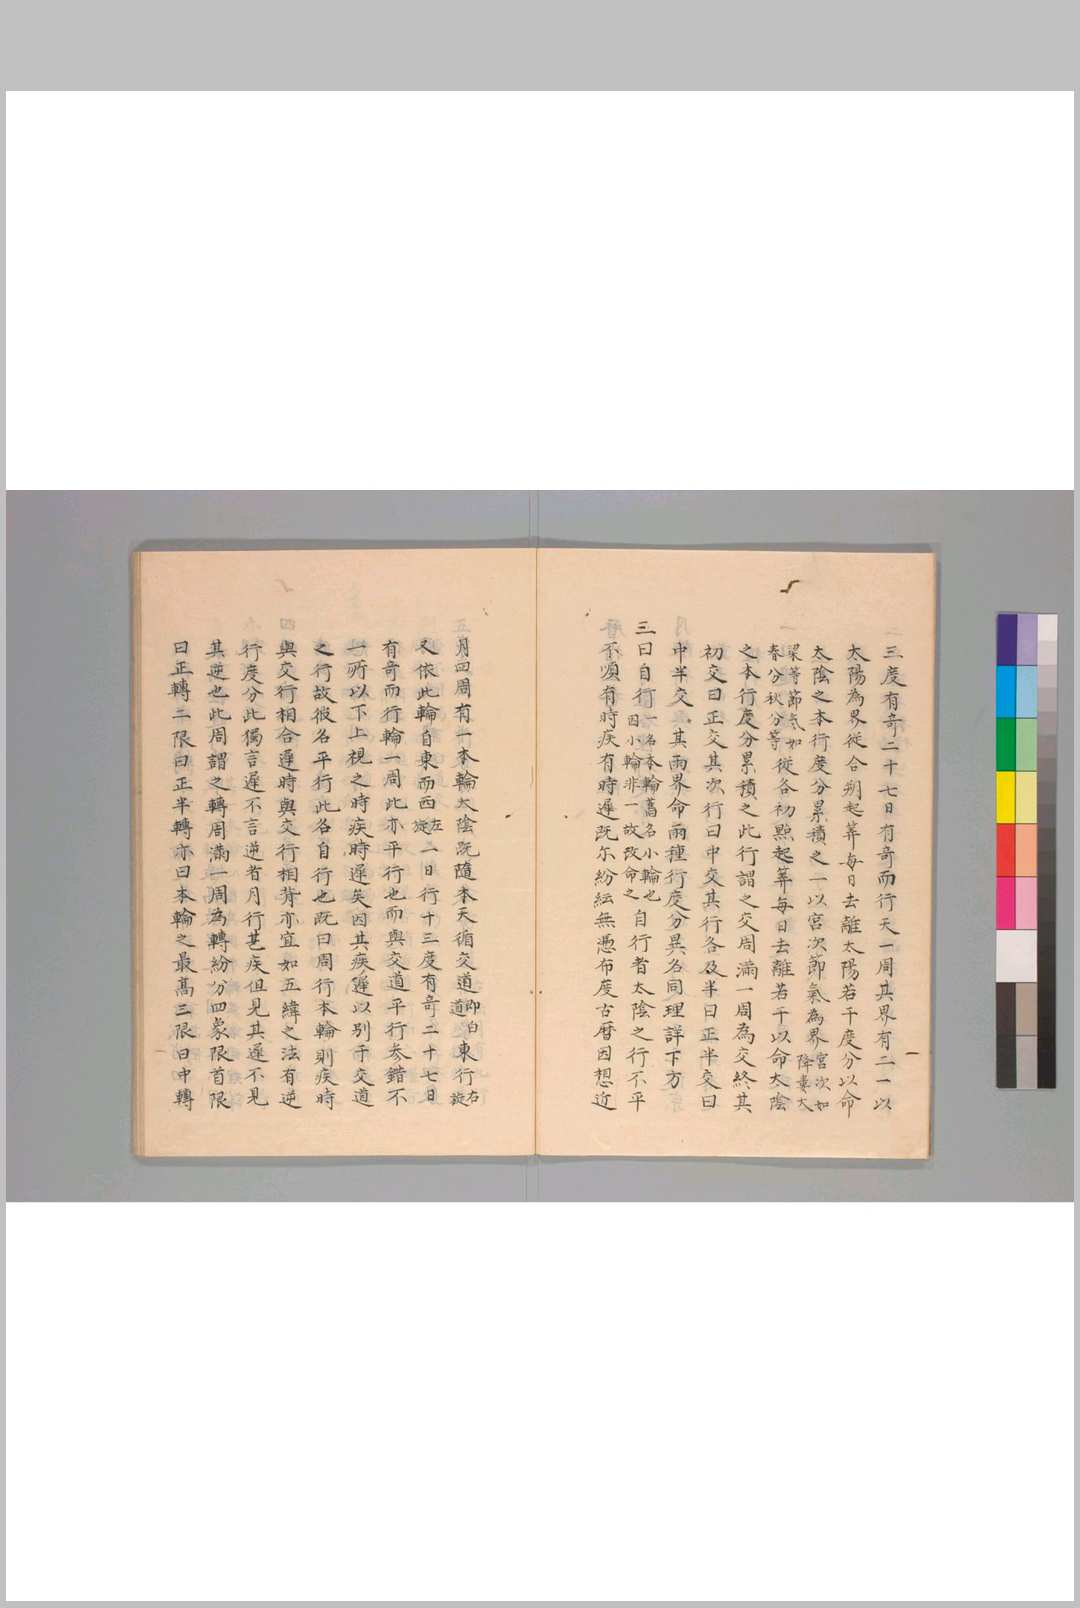 三度有竒二十七日有竒而行天一周其界有二一以
太陽為界從合朔起筭每日去離太陽若干度分以命
太陰之本行度分累積之一以宮次節氣為界宮次如降婁大
梁等節气如春分秋分等從各初㸃起筭每日去離若干以命太陰
之本行度分累積之此行謂之交周滿一周為交終其
初交曰正交其次行曰中交其行各及半曰正半交曰
中半交其兩界命兩種行度分異名同理詳下方
三曰自行一名本輪舊名小輪也因小輪非一故改命之自行者太陰之行不平
不順有時疾有時遲既尓紛紜無憑布度古暦因想近
月四周有一本輪太陰既隨本天循交道即白道東行右旋
又依此輪自東而西左旋二日行十三度有竒二十七日
有竒而行輪一周此亦平行也而與交道平行参錯不
一所以下上視之時疾時遲矣因其疾遲以别于交道
之行故彼名平行此名自行也既曰周行本輪則疾時
與交行相合遲時與交行相背亦宜如五緯之法有逆
行度分此獨言遲不言逆者月行甚疾但見其遲不見
其逆也此周謂之轉周滿一周為轉紛分四象限首限
曰正轉二限曰正半轉亦曰本輪之最髙三限曰中轉